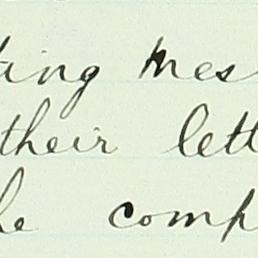 ting mes
their lett
he comp